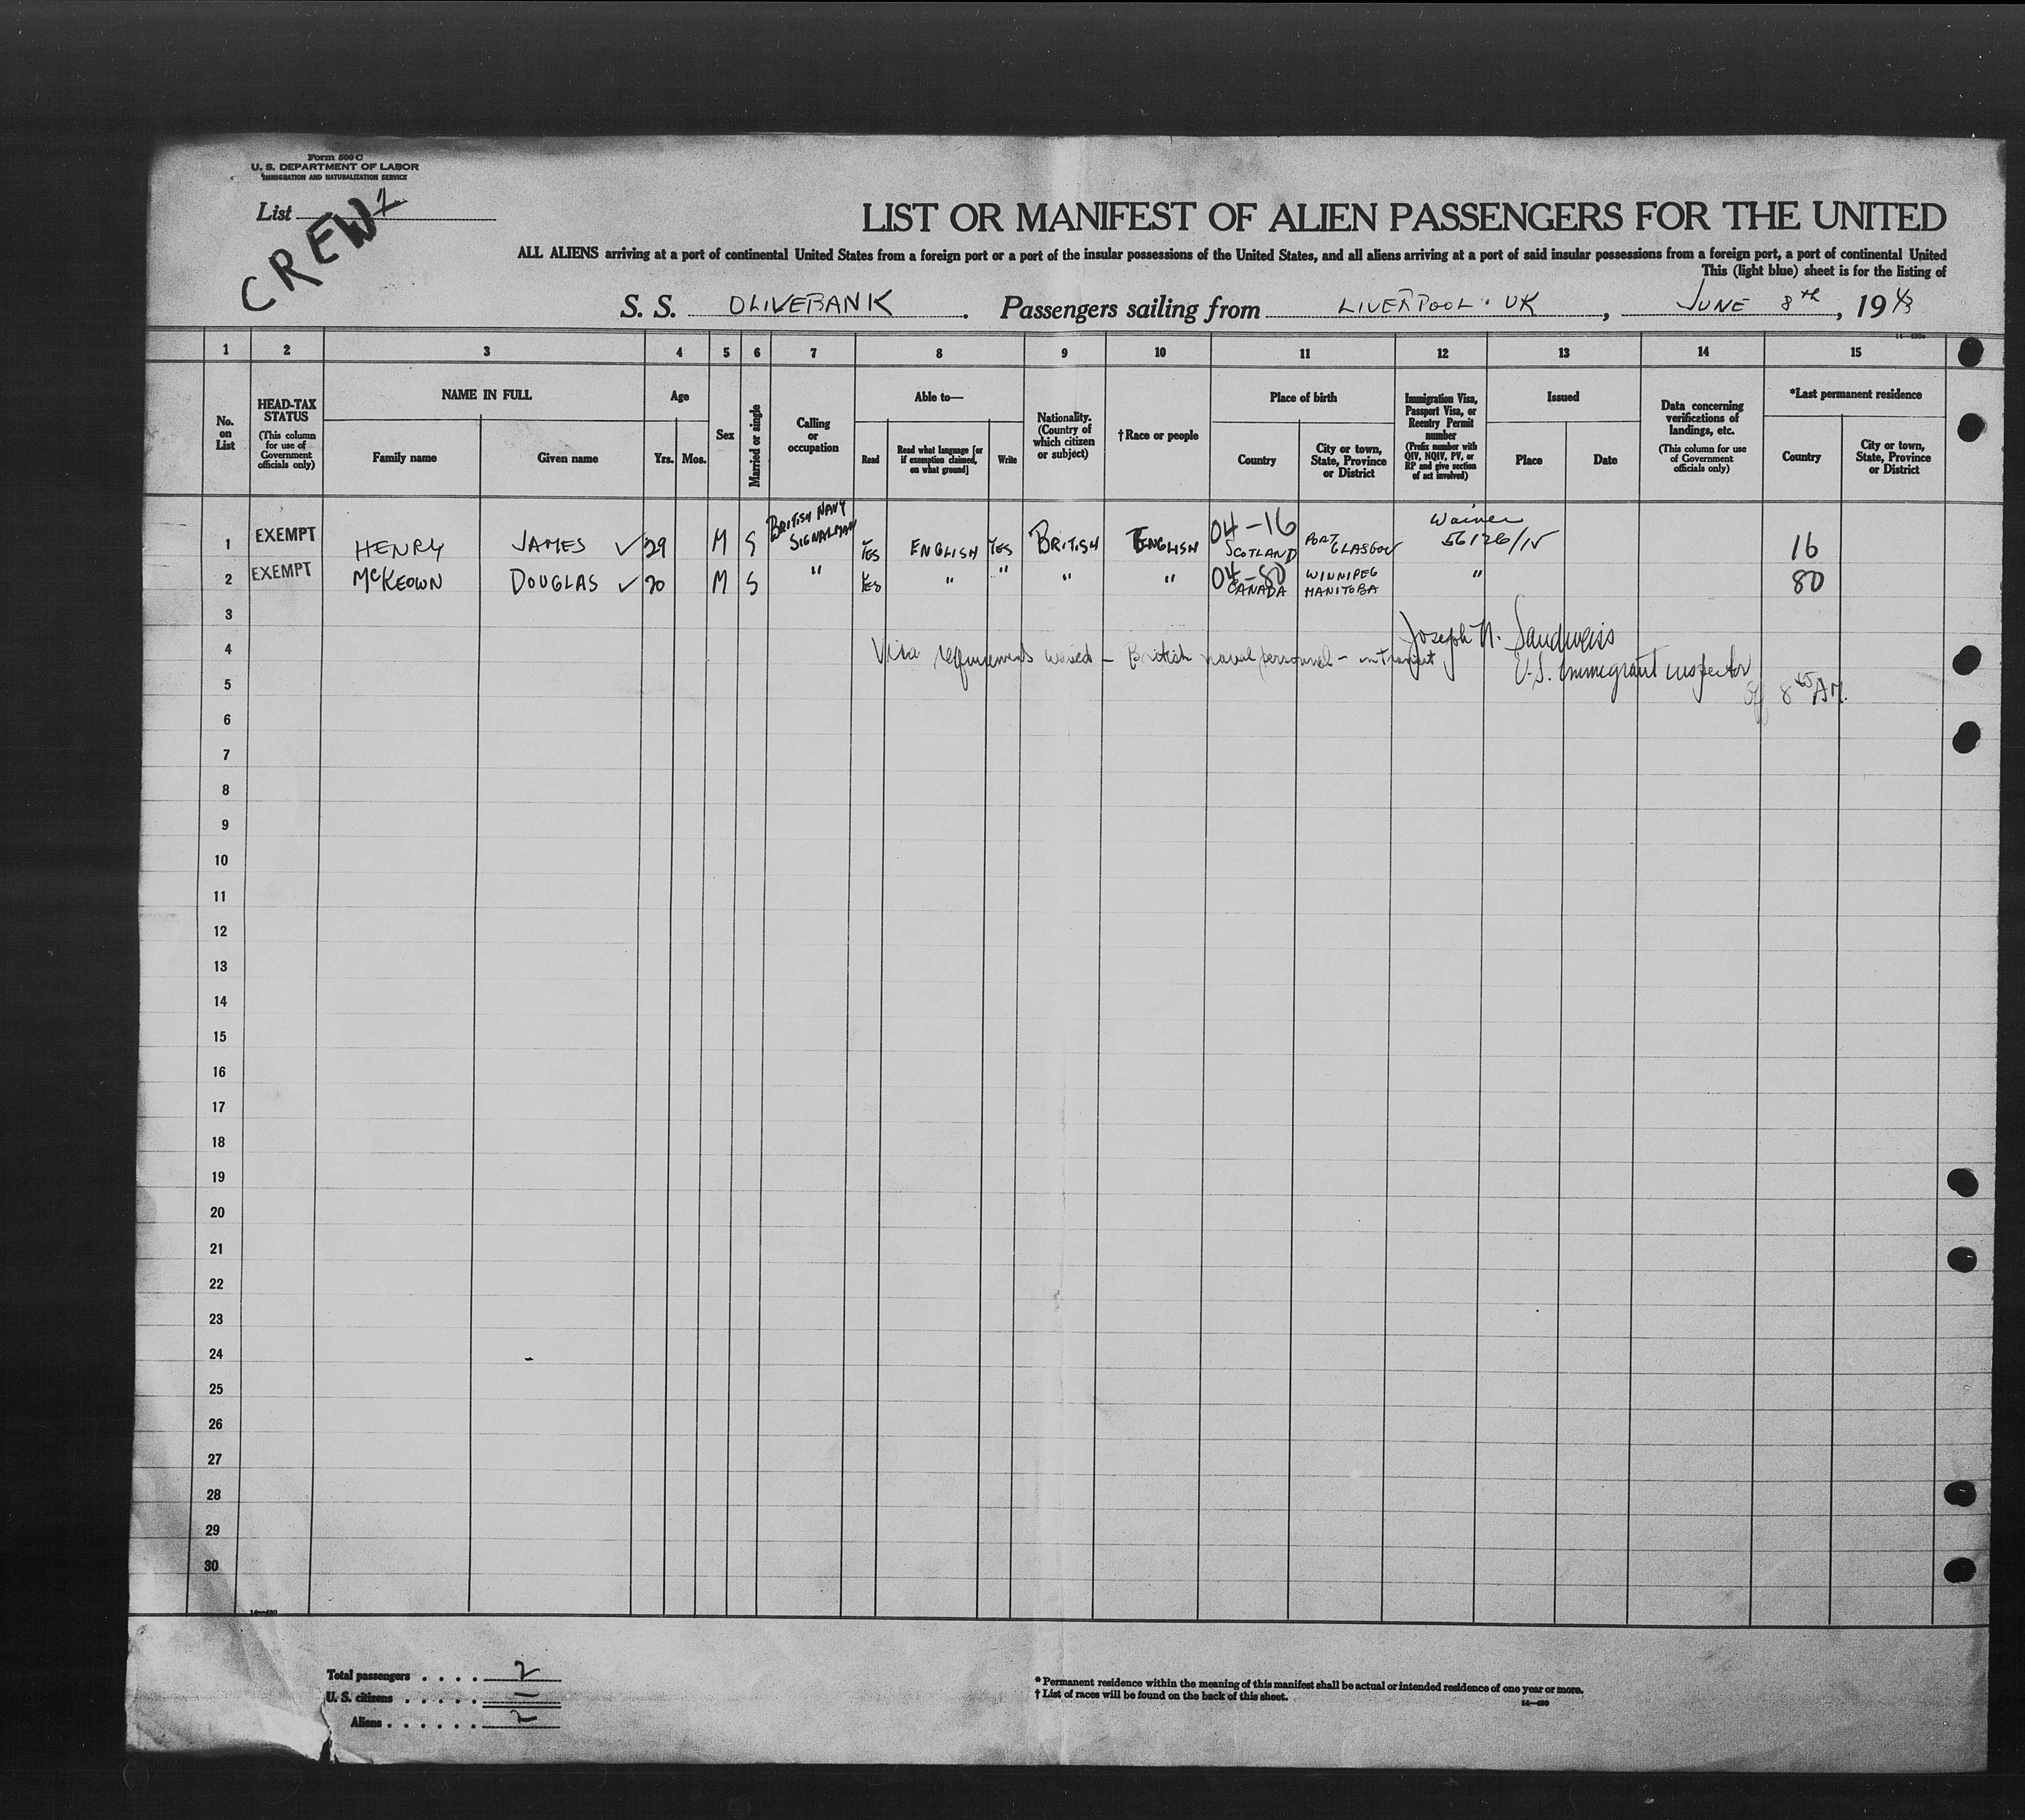 Form 500 C
U. S. DEPARTMENT OF LABOR
IMMIGRATION AND NATURALIZATION SERVICE
List 1
CREW
LIST OR MANIFEST OF ALIEN PASSENGERS FOR THE UNITED
ALL ALIENS arriving at a port of continental United States from a foreign port or a port of the insular possessions of the United States, and all aliens arriving at a port of said insular possessions from a foreign port, a port of continental United
This (light blue) sheet is for the listing of
S. S. OLIVEBANK. Passengers sailing from LIVERPOOL · UK, JUNE 8th, 1943
1 2 3 4 5 6 7 8 9 10 11 12 13 14 15
No. on List
HEAD-TAX STATUS (This column for use of Government officials only)
NAME IN FULL
Family name
Given name
Age
Yrs. Mos.
Sex
Married or single
Calling or occupation
Able to—
Read
Read what language [or if exemption claimed, on what ground]
Write
Nationality. (Country of which citizen or subject)
†Race or people
Place of birth
Country
City or town, State, Province or District
Immigration Visa, Passport Visa, or Reentry Permit number (Prefix number with QIV, NQIV, PV, or RP and give section of act involved)
Issued
Place
Date
Data concerning verifications of landings, etc. (This column for use of Government officials only)
*Last permanent residence
Country
City or town, State, Province or District
1 EXEMPT HENRY JAMES ✓ 29 M S BRITISH NAVY SIGNALMAN YES ENGLISH YES BRITISH ENGLISH 04-16 SCOTLAND PORT GLASGOW Waiver 56126/15 16
2 EXEMPT McKEOWN DOUGLAS ✓ 20 M S " YES " " " " 04-80 CANADA WINNIPEG MANITOBA " 80
3
4 Visa requirements waived - British naval personnel - in transit Joseph N. Sandweiss
5 U.S. Immigrant inspector
8 45 AM.
6
7
8
9
10
11
12
13
14
15
16
17
18
19
20
21
22
23
24
25
26
27
28
29
30
Total passengers . . . . 2
U. S. citizens . . . . . —
Aliens . . . . . . 2
* Permanent residence within the meaning of this manifest shall be actual or intended residence of one year or more.
† List of races will be found on the back of this sheet.